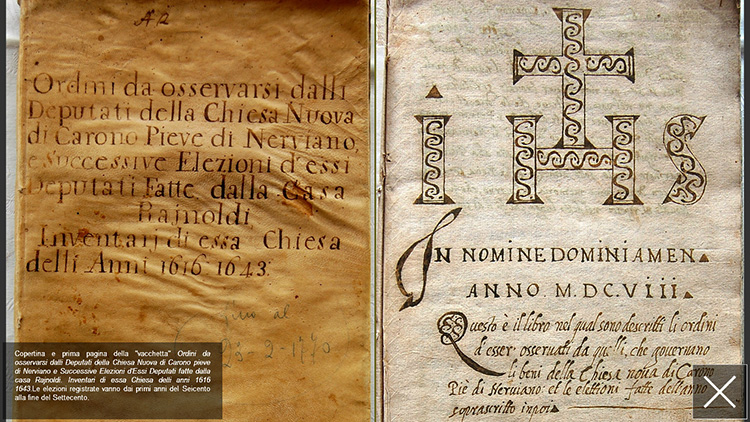 A R
Ordini da osservarsi dalli
Deputati della Chiesa Nuova
di Carono Pieve di Nerviano,
e Successive Elezioni d'essi
Deputati Fatte dalla Casa
Rajnoldi
Inventarj di essa Chiesa
delli Anni 1616 1643.
al
Copertina e prima pagina della "vacchetta" Ordini da
osservarsi dalli Deputati della Chiesa Nuova di Carono pieve
di Nerviano e Successive Elezioni d'Essi Deputati fatte dalla
casa Rajnoldi. Inventari di essa Chiesa delli anni 1616
1643.Le elezioni registrate vanno dai primi anni del Seicento
alla fine del Settecento.
iHS
IN NOMINE DOMINI AMEN
ANNO. M.DC.VIII.
Questo è il libro nel qual sono descritti li ordini
d'esser osservati da quelli, che governano
li beni della Chiesa nova di Carono
Piè di Nerviano: et le elettioni fatte dell'anno
soprascritto inpoi